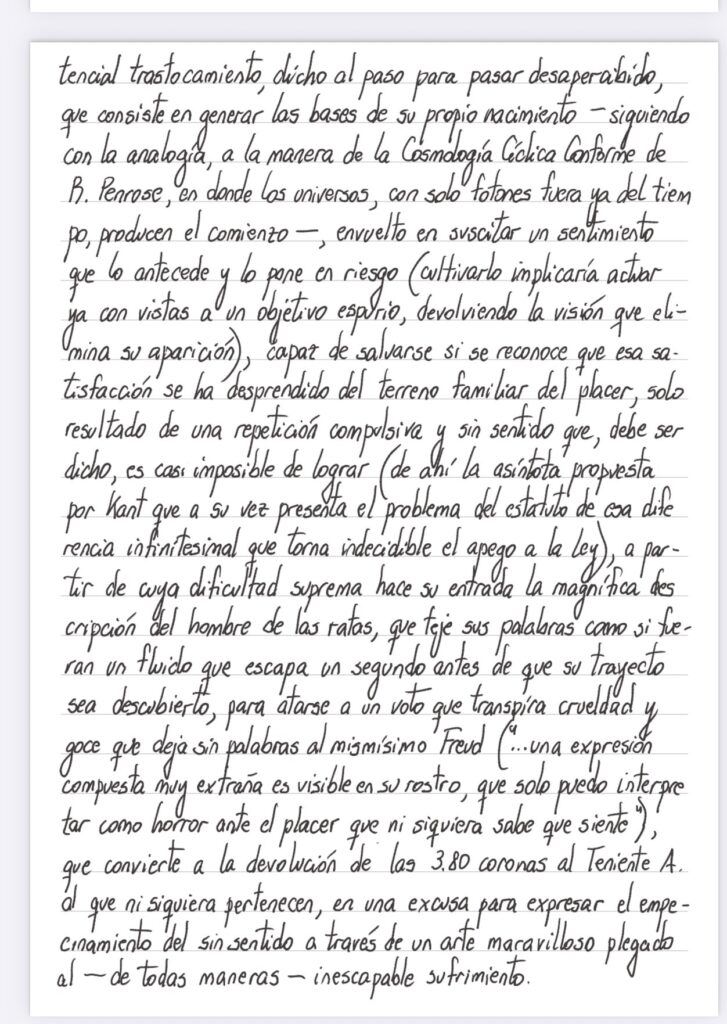 tencial trastocamiento, dicho al paso para pasar desapercibido,
que consiste en generar las bases de su propio nacimiento – siguiendo
con la analogía, a la manera de la Cosmología Cíclica Conforme de
R. Penrose, en donde los universos, con solo fotones fuera ya del tiem
po, producen el comienzo –, envuelto en suscitar un sentimiento
que lo antecede y lo pone en riesgo (cultivarlo implicaría actuar
ya con vistas a un objetivo espurio, devolviendo la visión que eli-
mina su aparición), capaz de salvarse si se reconoce que esa sa-
tisfacción se ha desprendido del terreno familiar del placer, solo
resultado de una repetición compulsiva y sin sentido que, debe ser
dicho, es casi imposible de lograr (de ahí la asíntota propuesta
por Kant que a su vez presenta el problema del estatuto de esa dife
rencia infinitesimal que torna indecidible el apego a la Ley), a par-
tir de cuya dificultad suprema hace su entrada la magnífica des
cripción del hombre de las ratas, que teje sus palabras como si fue-
ran un fluido que escapa un segundo antes de que su trayecto
sea descubierto, para atarse a un voto que transpira crueldad y
goce que deja sin palabras al mismísimo Freud ("...una expresión
compuesta muy extraña es visible en su rostro, que solo puedo interpre
tar como horror ante el placer que ni siquiera sabe que siente"),
que convierte a la devolución de las 3.80 coronas al Teniente A.
al que ni siquiera pertenecen, en una excusa para expresar el empe-
cinamiento del sin sentido a través de un arte maravilloso plegado
al – de todas maneras – inescapable sufrimiento.